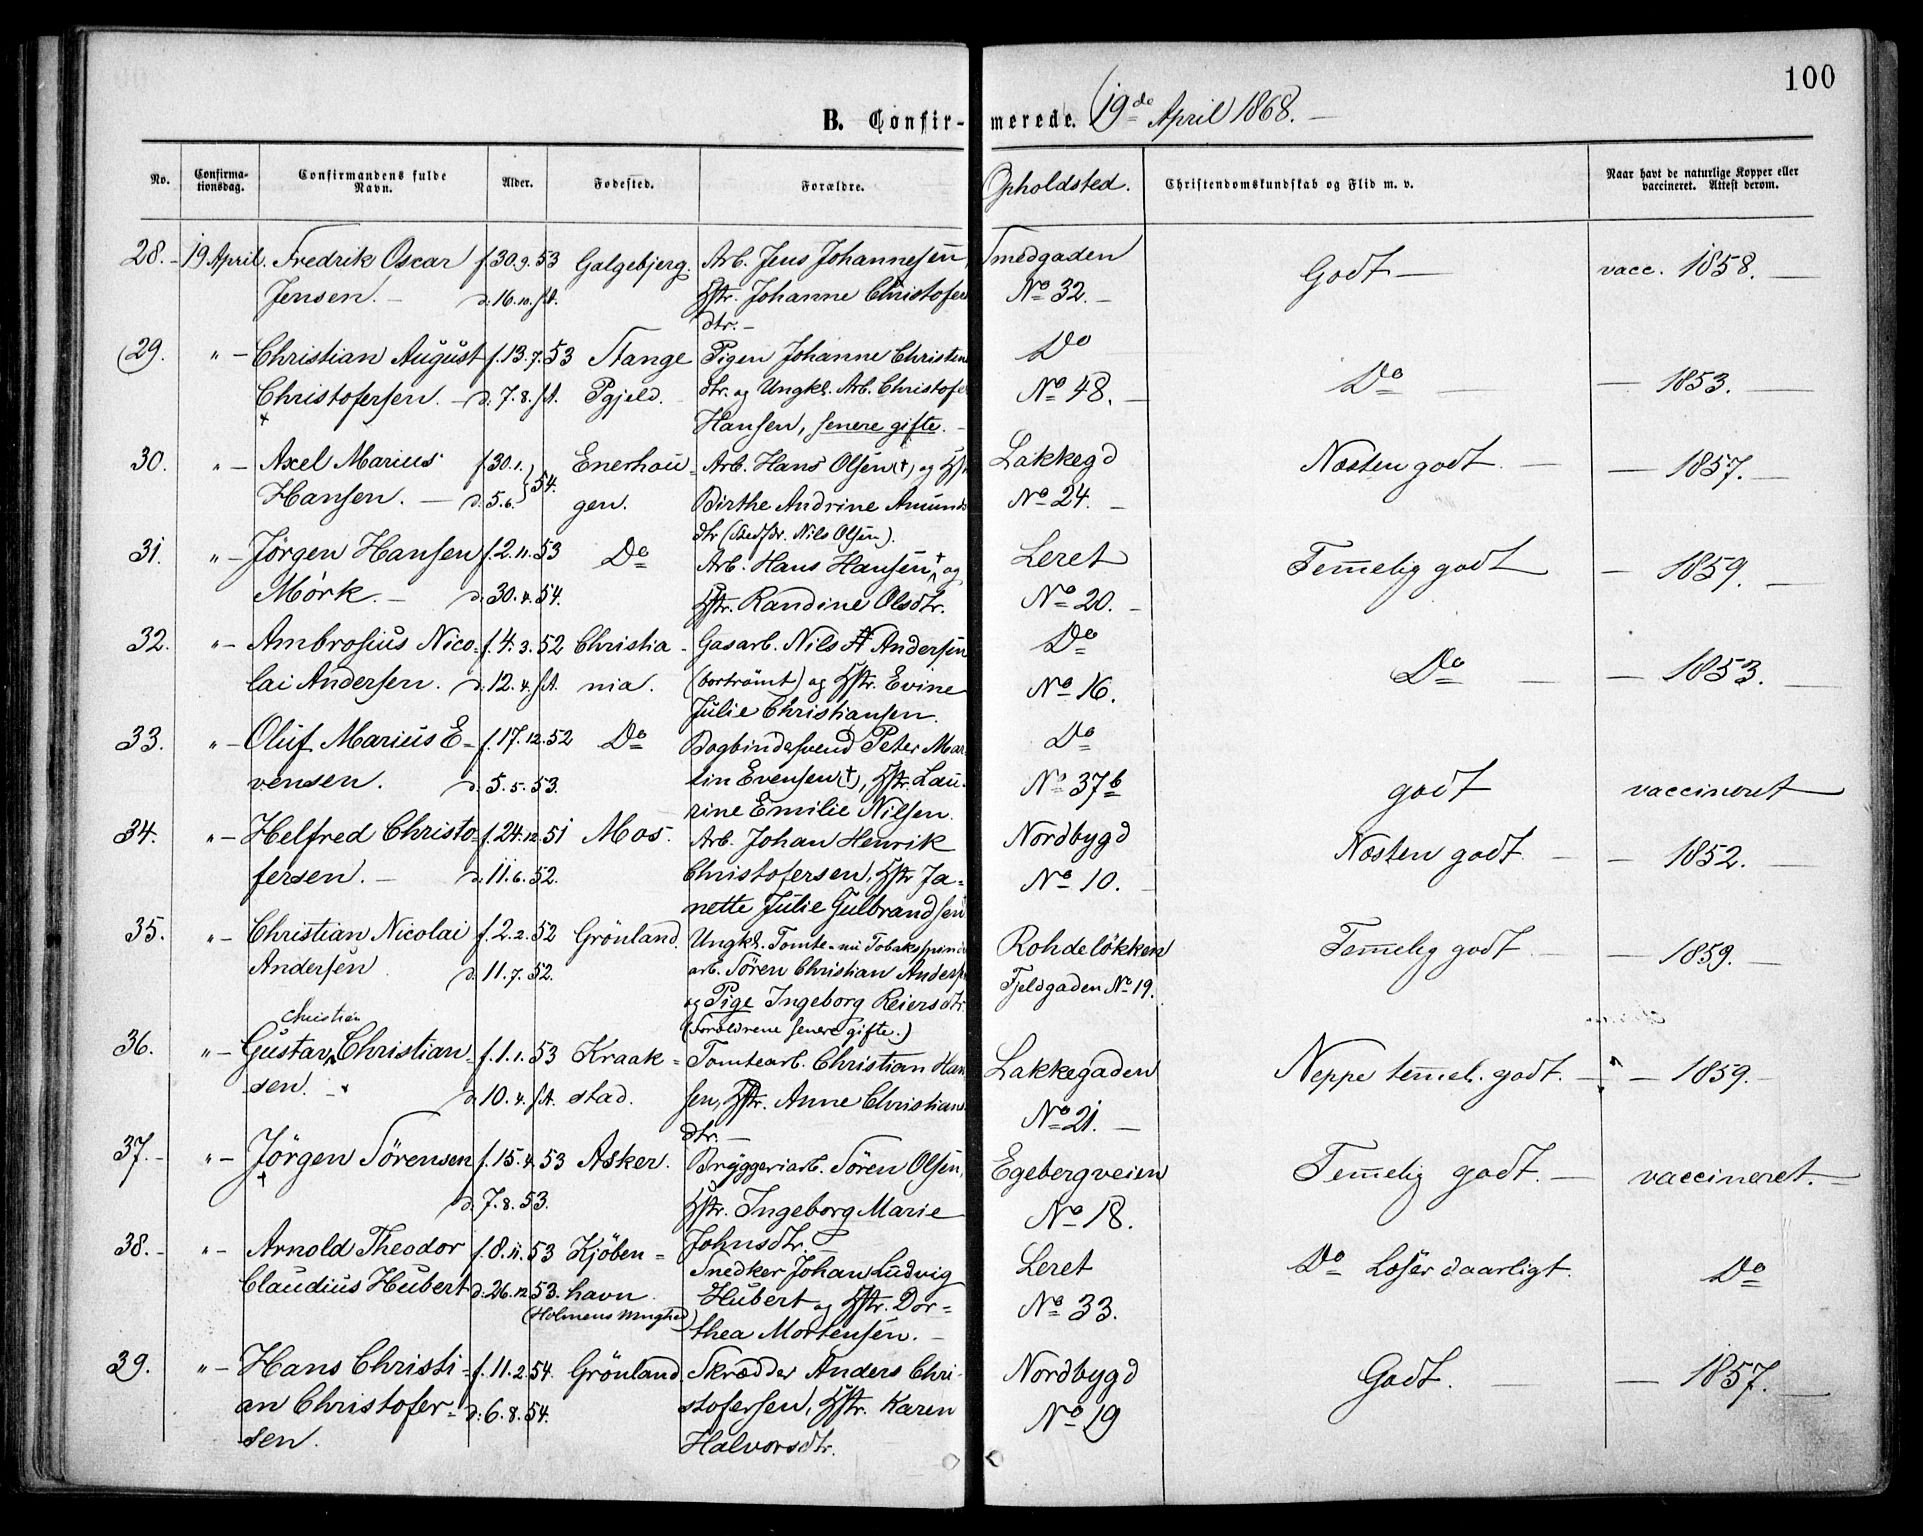 100
B. Confir- merede. 19de April 1868. —
No. Confirma-tionsdag. Confirmandens fulde Navn. Alder. Fødested. Forældre. Opholdsted. Christendomskundskab og Flid m. v. Naar havt de naturlige Kopper eller vaccineret. Attest derom.
28. - 19 April. Fredrik Oscar f. 30. 9. 53 Galgebjerg. Arb. Jens Johannesen, Smedgaden Godt — vacc. 1858. —
Jensen. — d. 16. 10. s.A. Hstr. Johanne Christofers No 32. -
dtr. -
29. " - Christian August f. 13. 7. 53 Stange Pigen Johanne Christens Do Do — — 1853. —
Christofersen. - d. 7. 8. s.A. Pgjeld. dtr. og Ungkl. Arb. Christofer No 48. -
Hansen, senere gifte. -
30. " - Axel Marius f. 30. 1. Enerhau- Arb. Hans Olsen (†) og Hstr. Lakkegd Næsten godt. — — 1857. -
Hansen. — d. 5. 6. 54. gen. Birthe Andrine Amunds No 24. -
dtr (Stedfdr. Nils Olsen).
31. " - Jörgen Hansen f. 2. 11. 53 Do Arb. Hans Hansen † og Leret Temmelig godt — 1859. —
Mörk. - d. 30. 4. 54. Hstr. Randine Olsdtr. No 20. -
32. " - Ambrosius Nico- f. 4. 3. 52 Christia- Gasarb. Nils Andersen Do Do — — 1853. —
lai Andersen. d. 12. 4. s.A. nia. (bortrömt) og Hstr. Evine No 16.
Julie Christiansen.
33. " - Oluf Marius E- f. 17. 12. 52 Do Bogbindersvend Peter Mar- Do godt vaccineret
vensen. d. 5. 5. 53. tin Evensen (†), Hstr. Lau- No 37b
rine Emilie Nilsen.
34. " - Helfred Christo- f. 24. 12. 51 Mos. Arb. Johan Henrik Nordbygd Næsten godt. - — 1852. —
fersen. - d. 11. 6. 52. Christofersen, Hstr Ja- No 10. -
nette Julie Gulbrandsen
35. " - Christian Nicolai f. 2. 2. 52 Grönland. Ungkl. Tomte- nu Tobaksspinderi Rohdelökken Temmelig godt. - — 1859. —
Andersen d. 11. 7. 52. arb. Sören Christian Andersen Fjeldgaden No 19.
og Pige Ingeborg Reiersdtr.
(Forældrene senere gifte.)
Christian
36. " - Gustav Christian- f. 1. 1. 53 Kraak- Tomtearb. Christian Han Lakkegaden Neppe temmel. godt. - — 1859. -
sen. - d. 10. 4. s.A. stad. sen, Hstr. Anne Christians No 21. -
dtr. —
37. - " - Jörgen Sörensen f. 15. 4. 53 Asker. Bryggeriarb. Sören Olsen, Egebergveien Temmelig godt. — vaccineret. -
d. 7. 8. 53. Hstr. Ingeborg Marie No 18.
Johnsdtr.
38. - " - Arnold Theodor f. 8. 11. 53 Kjöben- Snedker Johan Ludvig Leret Do Læser daarligt. Do
Claudius Hubert d. 26. 12. 53. havn. Hubert og Hstr. Dor- No 33.
(Holmens Mnghed) thea Mortensen. -
39. " - Hans Christi- f. 11. 2. 54. Grönland. Skrædder Anders Chri- Nordbygd Godt. — — 1857. —
an Christofer- d. 6. 8. 54. stofersen, Hstr. Karen No 19
sen. Halvorsdtr.